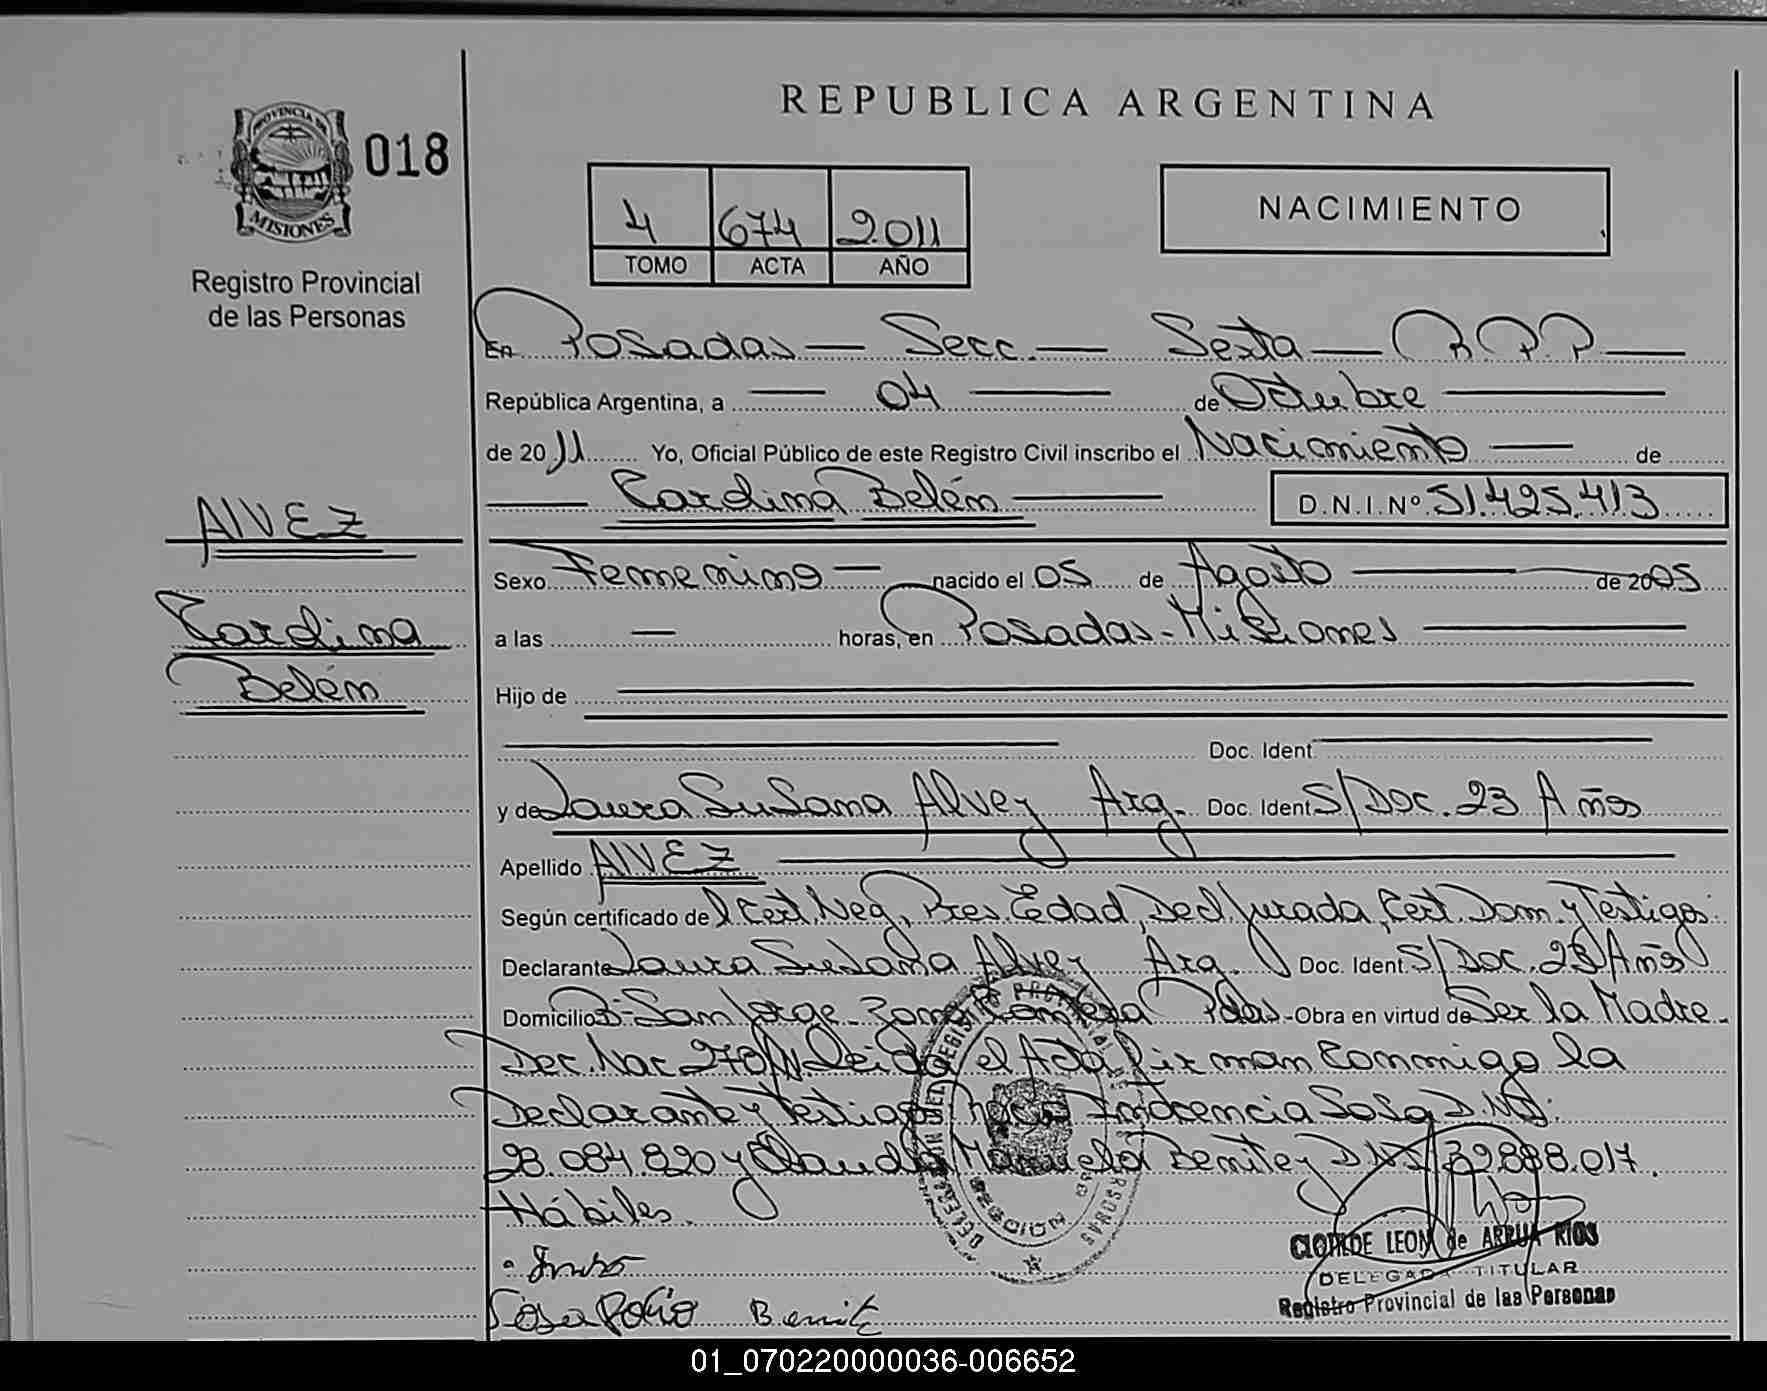 REPUBLICA ARGENTINA
PROVINCIA DE
MISIONES
018
Registro Provincial
de las Personas
4 674 2.011
TOMO ACTA AÑO
NACIMIENTO
En Posadas — Secc. — Sexta — R.P.P. —
República Argentina, a — 04 — de Octubre —
de 2011 Yo, Oficial Público de este Registro Civil inscribo el Nacimiento — de
— Carolina Belén — D.N.I.Nº 51.425.413
AlVEZ
Carolina
Belém
Sexo Femenino — nacido el 05 de Agosto — de 2005
a las — horas, en Posadas-Misiones —
Hijo de —
— Doc. Ident. —
y de Laura Susana Alvez Arg. Doc. Ident. S/Doc. 23 Años
Apellido AlVEZ —
Según certificado de Cert. Neg., Pres. Edad, Decl. Jurada, Cert. Dom. y Testigos
Declarante Laura Susana Alvez Arg. Doc. Ident. S/Doc. 23 Años
Domicilio B- San Jorge- Zona Pdas- Obra en virtud de Ser la Madre-
Dec. Nac 278/11. Leída el Acta firman Conmigo la
Declarante y Testigos Inocencia Sosa D.N.I:
28.084.820 y Claudia Manuela Benitez D.N.I 32.888.017.
Hábiles.
Sosa Rocio Benitez
CLOTILDE LEON de ARRUA RIOS
DELEGADA TITULAR
Registro Provincial de las Personas
01_070220000036-006652